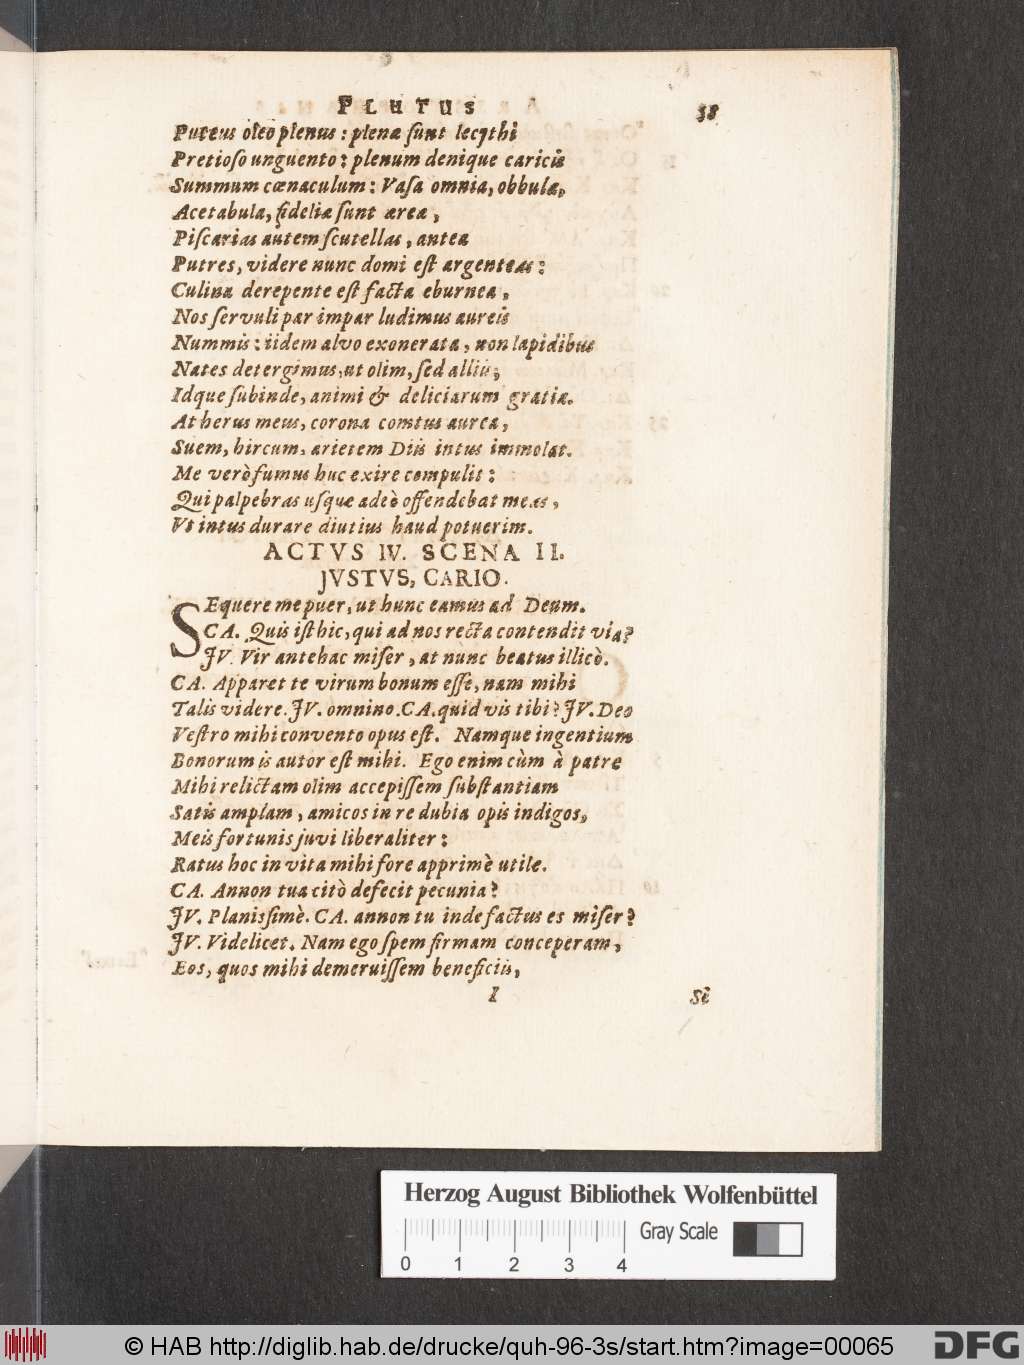 PLUTUS 38
Puteus oleo plenus: plenæ ſunt lecythi
Pretioſo unguento: plenum denique caricis
Summum cœnaculum: Vaſa omnia, obbulæ,
Acetabula, fidelia ſunt ærea,
Piſcarias autem ſcutellas, antea
Putres, videre nunc domi eſt argenteas:
Culina derepente eſt facta eburnea,
Nos ſervuli par impar ludimus aureis
Nummis: iidem alvo exonerata, non lapidibus
Nates detergimus, ut olim, ſed alliis,
Idque ſubinde, animi & deliciarum gratia.
At herus meus, corona comtus aurea,
Suem, hircum, arietem Diis intus immolat.
Me verò fumus huc exire compulit:
Qui palpebras uſque adeò offendebat meas,
Vt intus durare diutius haud potuerim.
ACTVS IV. SCENA II.
JVSTVS, CARIO.
SEquere me puer, ut hunc eamus ad Deum.
CA. Quis iſt hic, qui ad nos recta contendit via?
JV. Vir antehac miſer, at nunc beatus illicò.
CA. Apparet te virum bonum eſſe, nam mihi
Talis videre. JV. omnino. CA. quid vis tibi? JV. Deo
Veſtro mihi convento opus eſt. Namque ingentium
Bonorum is autor eſt mihi. Ego enim cùm à patre
Mihi relictam olim accepiſſem ſubſtantiam
Satis amplam, amicos in re dubia opis indigos,
Meis fortunis juvi liberaliter:
Ratus hoc in vita mihi fore apprimè utile.
CA. Annon tua citò defecit pecunia?
JV. Planiſſimè. CA. annon tu inde factus es miſer?
JV. Videlicet. Nam ego ſpem firmam conceperam,
Eos, quos mihi demeruiſſem beneficiis,
I Si
Herzog August Bibliothek Wolfenbüttel
Gray Scale
0 1 2 3 4
© HAB http://diglib.hab.de/drucke/quh-96-3s/start.htm?image=00065 DFG